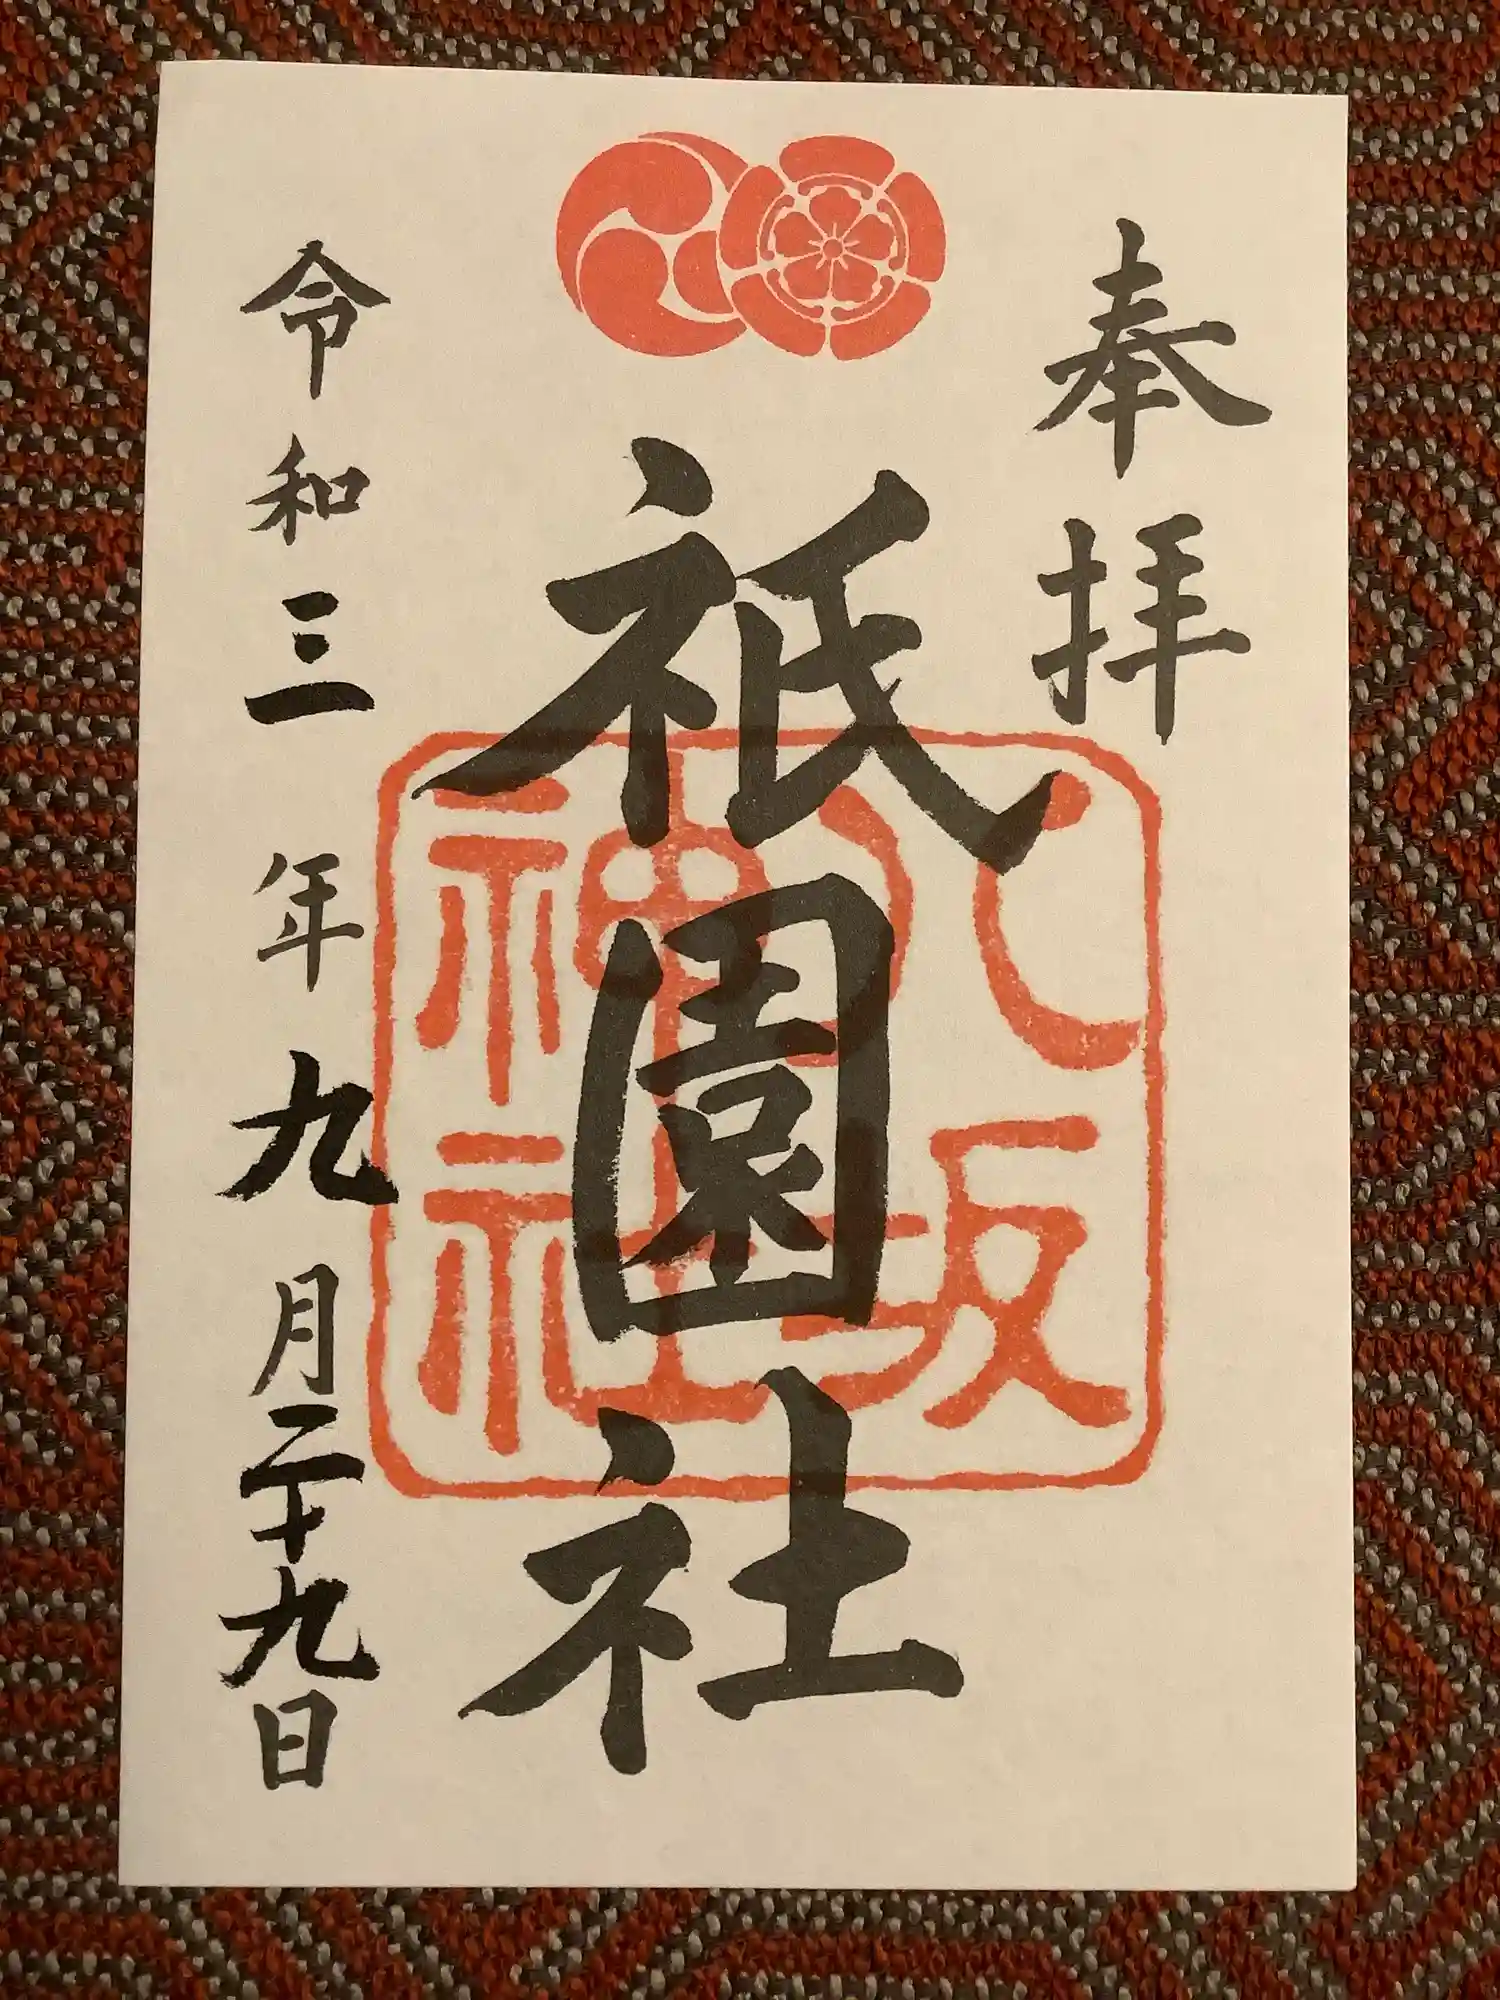 奉拝
祇園社
八坂
神社
令和三年九月二十九日